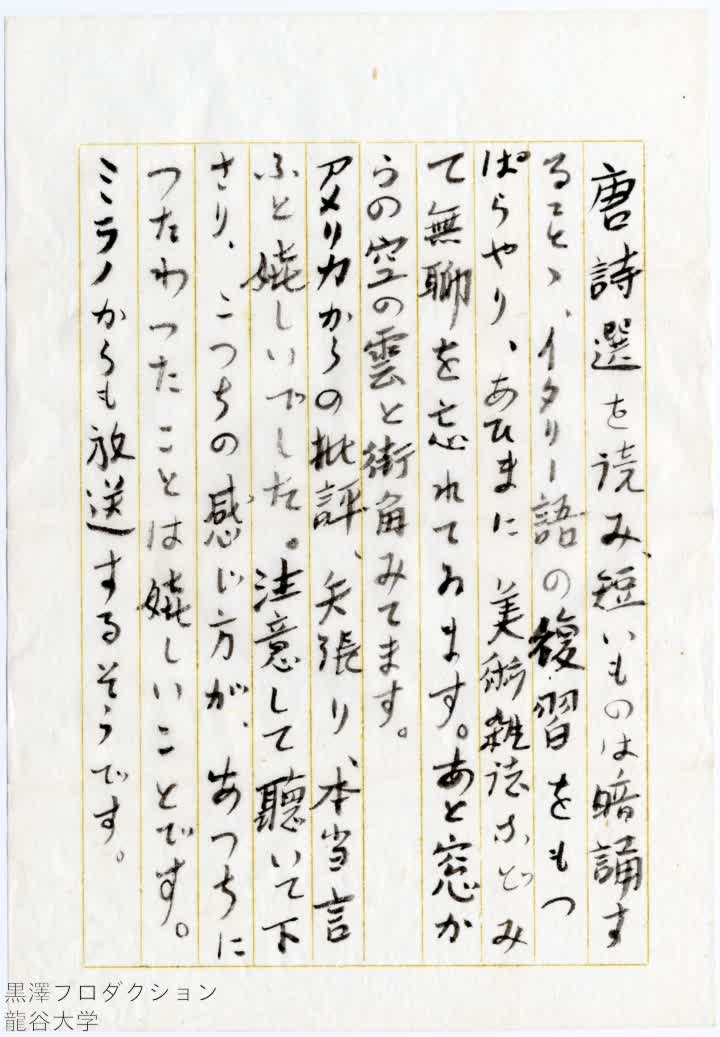 唐詩選を読み、短いものは暗誦す
ること、、イタリー語の複習をもつ
ぱらやり、あひまに美術雑誌などみ
て無聊を忘れてゐます。あと窓か
らの空の雲と街角みてます。
アメリカからの批評、矢張り、本当言
ふと嬉しいでした。注意して聴いて下
さり、こつちの感じ方が、あつちに
つたわつたことは嬉しいことです。
ミラノからも放送するそうです。
黒澤プロダクション
龍谷大学